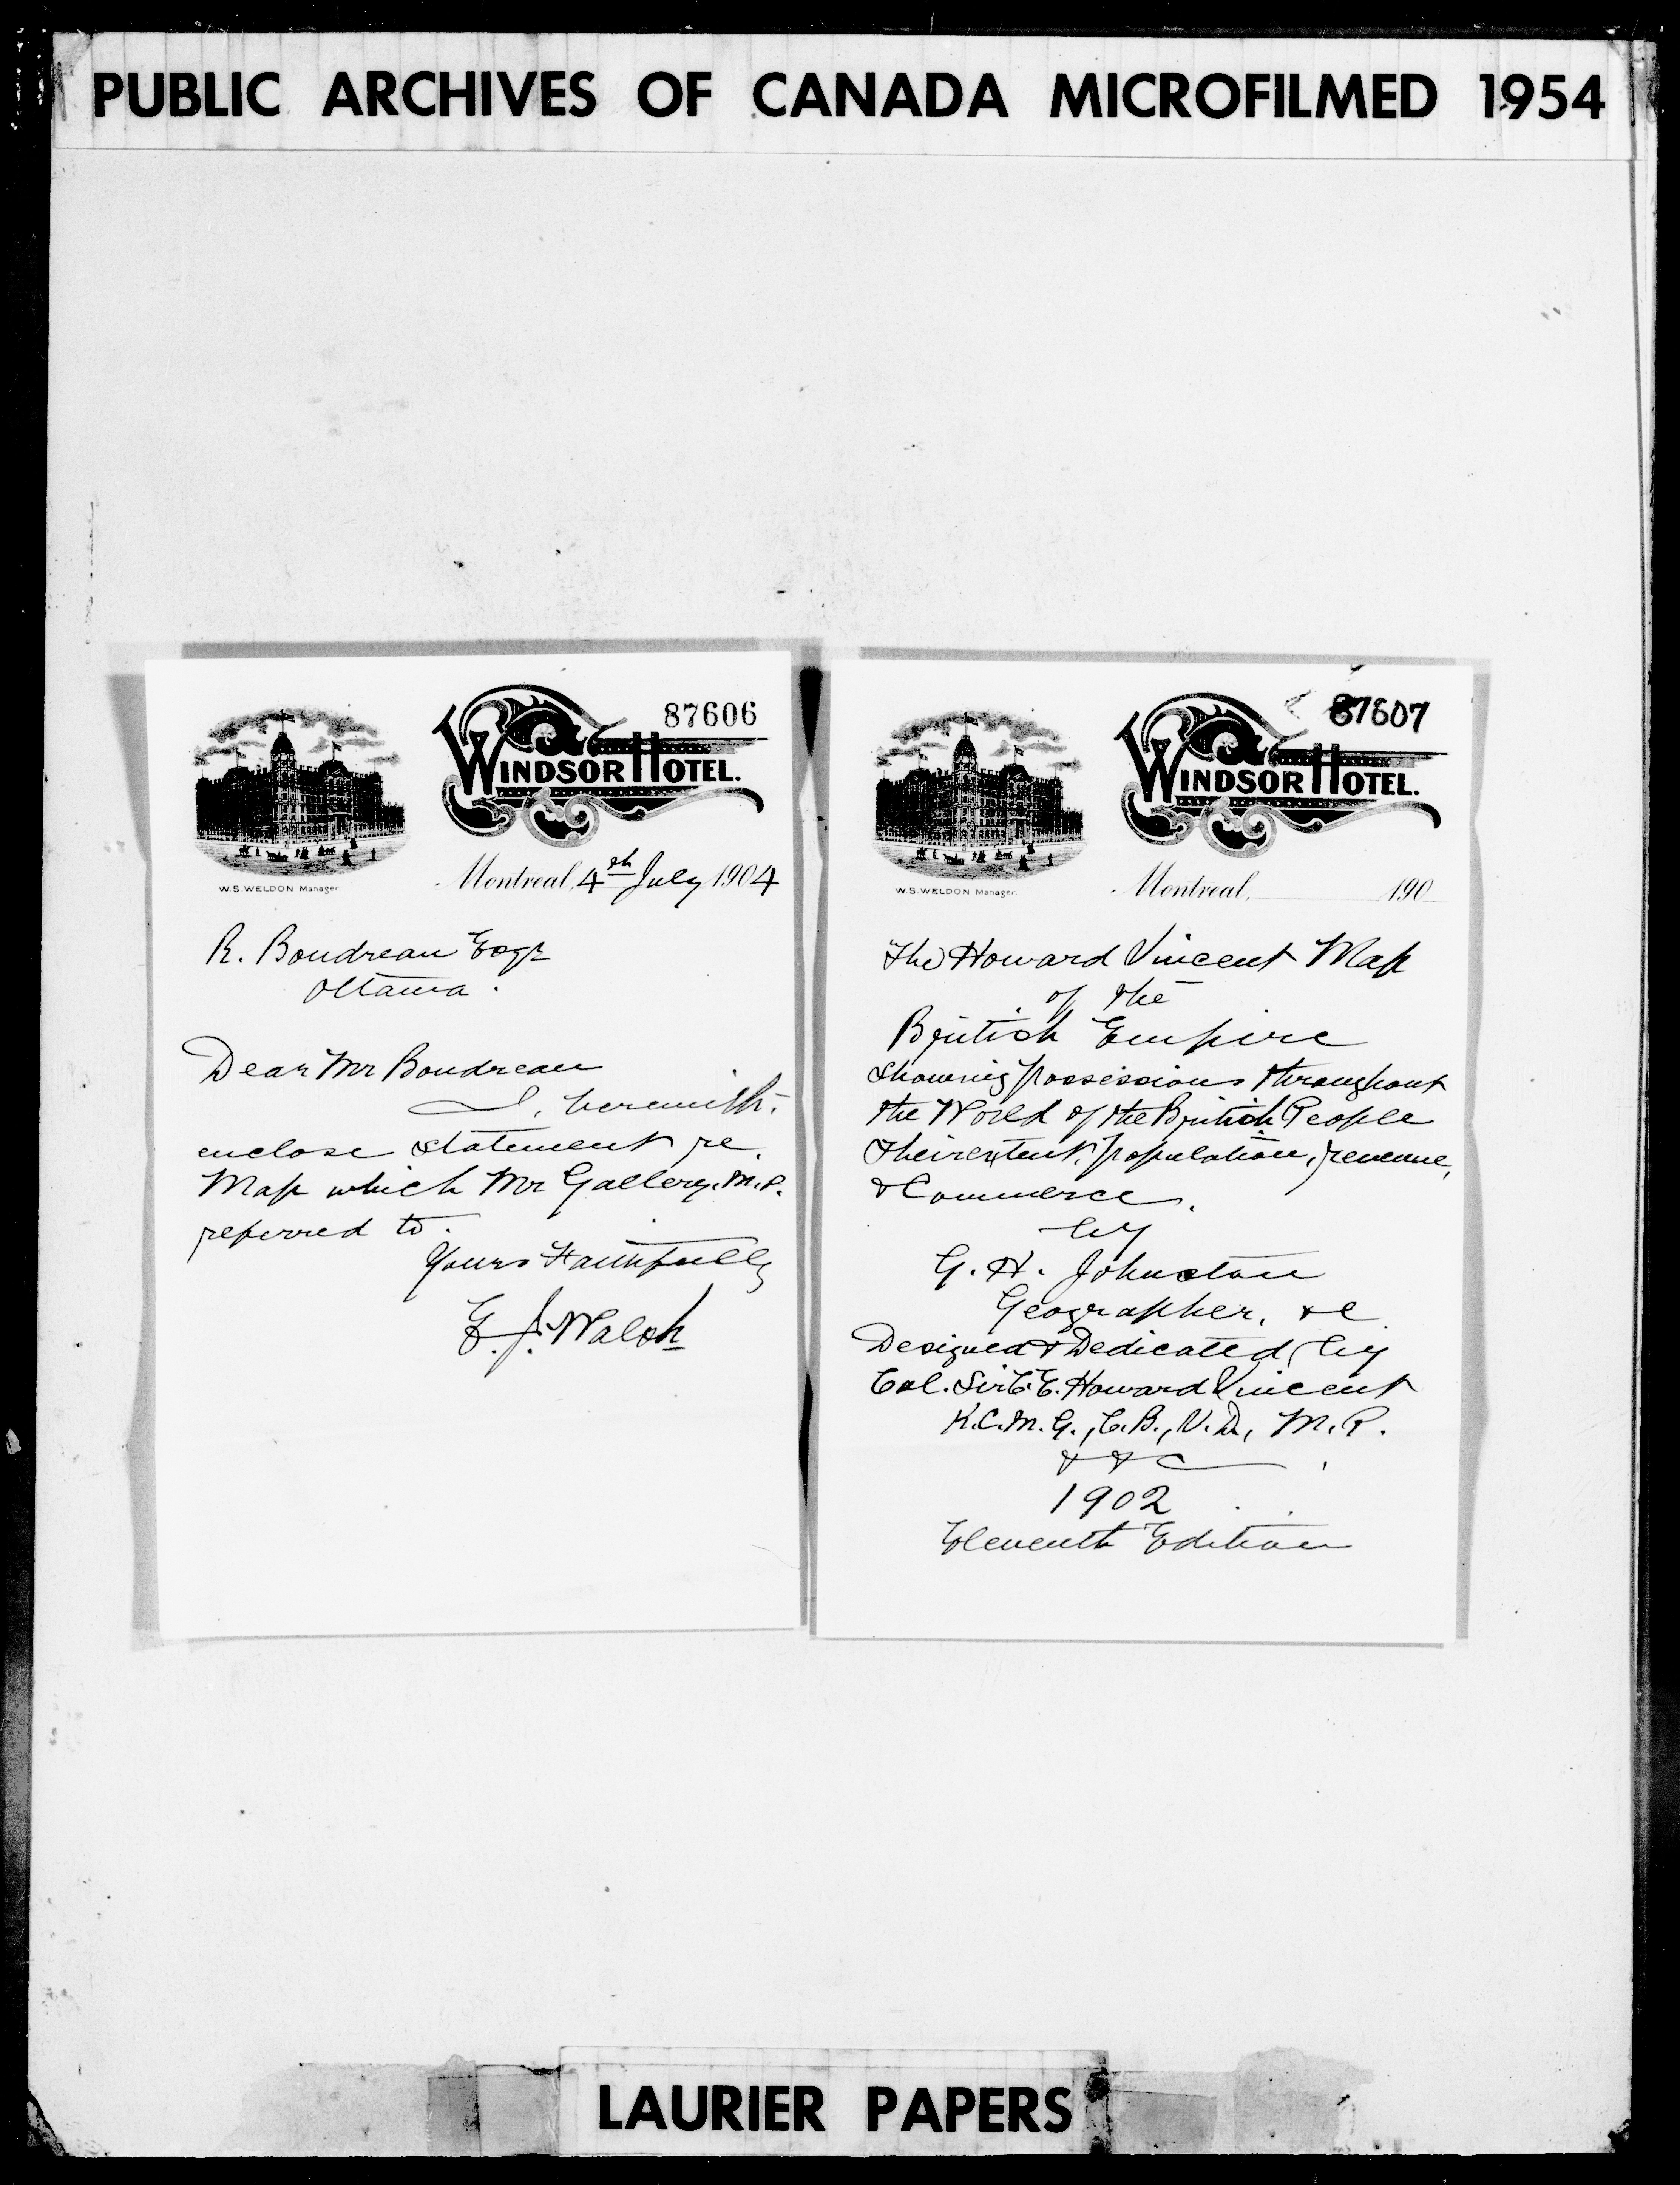 PUBLIC ARCHIVES OF CANADA MICROFILMED 1954
87606
WINDSOR HOTEL.
W.S. WELDON Manager.
Montreal, 4th July 1904
R. Boudreau Esqr
Ottawa.
Dear Mr Boudreau
I, herewith,
enclose statement re.
Map which Mr Gallery, M.P.
referred to.
Yours Faithfully
E. J. Walsh
87607
WINDSOR HOTEL.
W.S. WELDON Manager.
Montreal, 190
The Howard Vincent Map
of the
British Empire
Showing possessions throughout
the World of the British People
Their extent, population, revenue,
& Commerce.
by
G. H. Johnston
Geographer, &c
Designed & Dedicated by
Col. Sir C. E. Howard Vincent
K.C.M.G., C.B., V.D., M.P.
& & C
1902
Eleventh Edition
LAURIER PAPERS